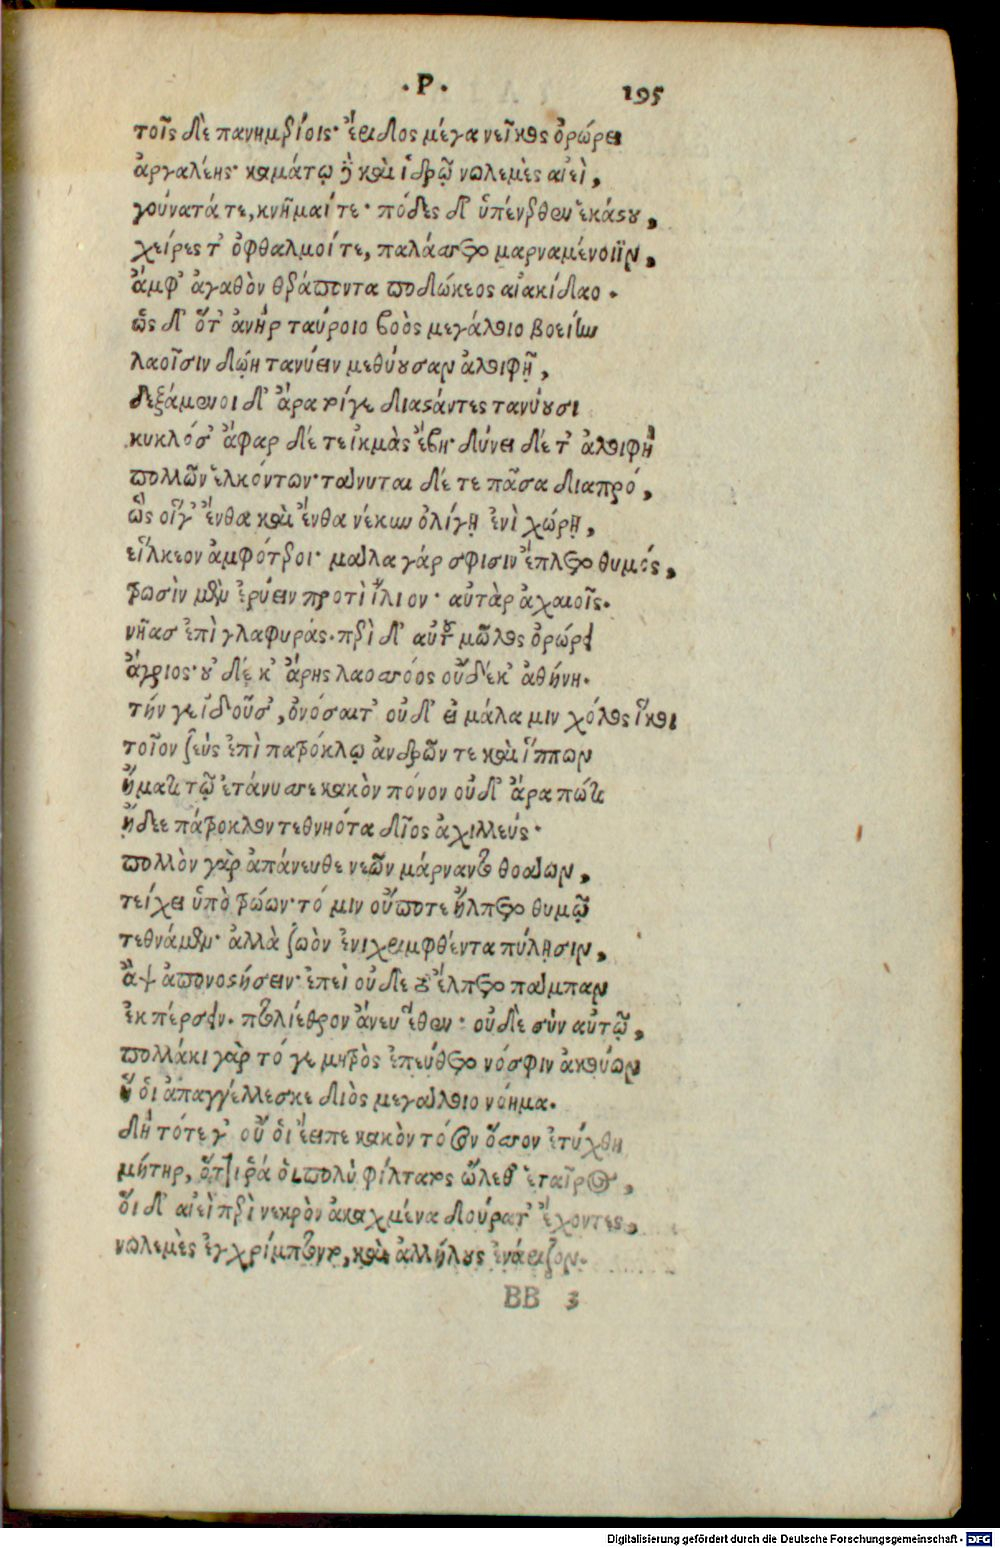 ·Ρ· 195
τοῖς δὲ πανημερίοις· ἔειδος μέγα νεῖκος ὀρώρει
ἀργαλέης· καμάτῳ δὲ καὶ ἱδρῷ νωλεμὲς αἰεὶ,
γούνατά τε, κνῆμαί τε· πόδες δ' ὑπένερθεν ἑκάστου,
χεῖρές τ' ὀφθαλμοί τε, παλάσσετο μαρναμένοιϊν,
ἀμφ' ἀγαθὸν θεράποντα ποδώκεος αἰακίδαο.
ὡς δ' ὅτ' ἀνὴρ ταύροιο βοὸς μεγάλοιο βοείην
λαοῖσιν δώῃ τανύειν μεθύουσαν ἀλοιφῇ,
δεξάμενοι δ' ἄρα τοίγε διαστάντες τανύουσι
κυκλόσ' ἄφαρ δέ τε ἰκμὰς ἔβη· δύνει δέ τ' ἀλοιφὴ
πολλῶν ἑλκόντων· τάνυται δέ τε πᾶσα διαπρό,
ὣς οἵγ' ἔνθα καὶ ἔνθα νέκυν ὀλίγῃ ἐνὶ χώρῃ,
εἵλκεον ἀμφότεροι· μάλα γάρ σφισιν ἔπλετο θυμός,
τρωσὶν μὲν ἐρύειν προτὶ ἴλιον· αὐτὰρ ἀχαιοῖς.
νῆας ἐπὶ γλαφυράς. περὶ δ' αὐτοῦ μῶλος ὀρώρει
ἄγριος· οὐ δέ κ' ἄρης λαοσσόος οὐδέ κ' ἀθήνη.
τήν γε ἰδοῦσ', ὀνόσαιτ' οὐδ' εἰ μάλα μιν χόλος ἵκοι
τοῖον ζεὺς ἐπὶ πατρόκλῳ ἀνδρῶν τε καὶ ἵππων
ἤματι τῷ ἐτάνυσσε κακὸν πόνον οὐδ' ἄρα πώτι
ᾔδεε πάτροκλον τεθνηότα δῖος ἀχιλλεύς·
πολλὸν γὰρ ἀπάνευθε νεῶν μάρναντο θοάων,
τείχει ὑπὸ τρώων· τό μιν οὔποτε ἤλπετο θυμῷ
τεθνάμεν· ἀλλὰ ζωὸν ἐνιχριμφθέντα πύλῃσιν,
ἂψ ἀπονοστήσειν· ἐπεὶ οὐδὲ τὸ ἔλπετο πάμπαν
ἐκπέρσειν. πτολίεθρον ἄνευ ἕθεν· οὐδὲ σὺν αὐτῷ,
πολλάκι γὰρ τό γε μητρὸς ἐπεύθετο νόσφιν ἀκούων
ἥ οἱ ἀπαγγέλλεσκε διὸς μεγάλοιο νόημα.
δὴ τότε γ' οὔ οἱ ἔειπε κακὸν τόσον ὅσσον ἐτύχθη
μήτηρ, ὅττι ῥά οἱ πολὺ φίλτατος ὤλεθ' ἑταῖρος,
οἵ δ' αἰεὶ περὶ νεκρὸν ἀκαχμένα δούρατ' ἔχοντες,
νωλεμὲς ἐγχρίμπτοντο, καὶ ἀλλήλους ἐνάριζον.
BB 3
Digitalisierung gefördert durch die Deutsche Forschungsgemeinschaft - DFG